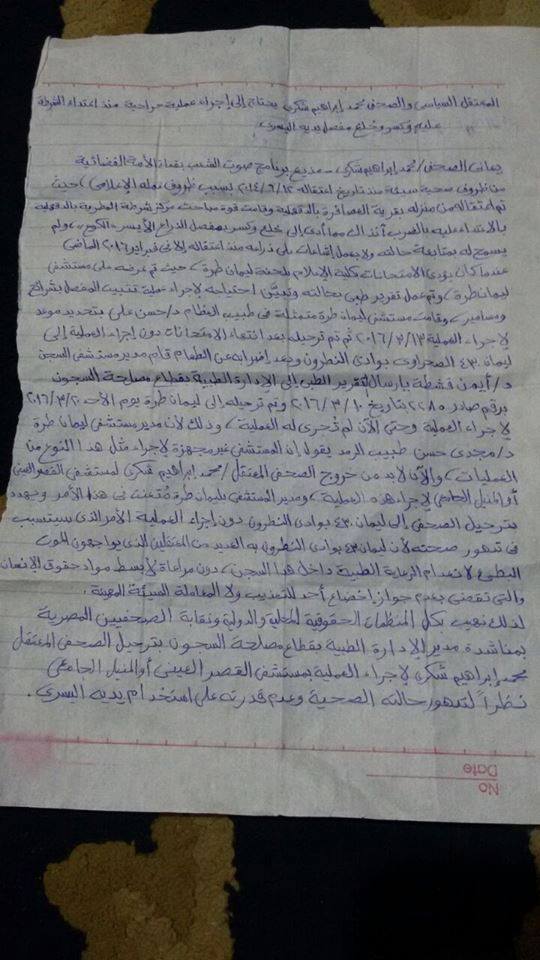 المعتقل السياسى والصحفى محمد إبراهيم شكرى يحتاج إلى إجراء عملية جراحية منذ اعتداء الشرطة
عليه وكسر وخلع مفصل يديه اليسرى
يعانى الصحفى / محمد إبراهيم شكرى - مذيع برنامج صوت الشعب بقناة الأمة الفضائية
من ظروف صحية سيئة منذ تاريخ اعتقاله ٢٠١٤/٦/١٢ بسبب ظروف عمله الإعلامى ، حيث
تم اعتقاله من منزله بقرية العصافرة بالدقهلية وقامت قوة مباحث مركز شرطة المطرية بالدقهلية
بالاعتداء عليه بالضرب آنذاك مما أدى إلى خلع وكسر بمفصل الذراع الأيسر "الكوع" ، ولم
يسمح له بمتابعة حالته ولا بعمل إشاعات على ذراعه منذ اعتقاله إلا فى فبراير ٢٠١٦ الماضى
عندما كان يؤدى الامتحانات بكلية الإعلام بلجنة ليمان طرة ، حيث تم عرضه على مستشفى
ليمان طرة ، وتم عمل تقرير طبى بحالته وتبيّن احتياجه لإجراء عملية تثبيت المفصل بشرائح
ومسامير ، وقامت مستشفى ليمان طرة متمثلة فى طبيب العظام د/حسن على بتحديد موعد
لإجراء العملية ٢٠١٦/٣/١٣ ثم تم ترحيله بعد انتهاء الامتحانات دون إجراء العملية إلى
ليمان ٤٣٠ الصحراوى بوادى النطرون وبعد إضرابه عن الطعام قام مدير مستشفى السجن
د/أيمن قشطة بإرسال التقرير الطبى إلى الإدارة الطبية بقطاع مصلحة السجون
برقم صادر ٢٢٨٥ بتاريخ ٢٠١٦/٣/١٠ وتم ترحيله إلى ليمان طرة يوم الأحد ٢٠١٦/٣/٢٠
لإجراء العملية وحتى الآن لم تُجرى له العملية ، وذلك لأن مدير مستشفى ليمان طرة
د/مجدى حسن طبيب الرمد يقول إن المستشفى غير مجهزة لإجراء مثل هذا النوع من
العمليات ، والآن لابد من خروج الصحفى المعتقل / محمد إبراهيم شكرى لمستشفى القصر العينى
أو المنيل الجامعى لإجراء هذه العملية ، ومدير المستشفى بليمان طرة متعنت فى هذا الأمر ويهدد
بترحيل الصحفى إلى ليمان ٤٣٠ بوادى النطرون دون إجراء العملية الأمر الذى سيتسبب
فى تدهور صحته لأن ليمان ٤٣٠ بوادى النطرون به العديد من المعتقلين الذى يواجهون الموت
البطئ لانعدام الرعاية الطبية داخل هذا السجن ، دون مراعاة لأبسط مواد حقوق الإنسان
والتى تقضى بعدم جواز إخضاع أحد للتعذيب ولا المعاملة السيئة المهينة .
لذلك نهيب بكل المنظمات الحقوقية المحلية والدولية ونقابة الصحفيين المصرية
بمناشدة مدير الإدارة الطبية بقطاع مصلحة السجون بترحيل الصحفى المعتقل
محمد إبراهيم شكرى لإجراء العملية بمستشفى القصر العينى أو المنيل الجامعى
نظراً لتدهور حالته الصحية وعدم قدرته على استخدام يديه اليسرى .
No
Date